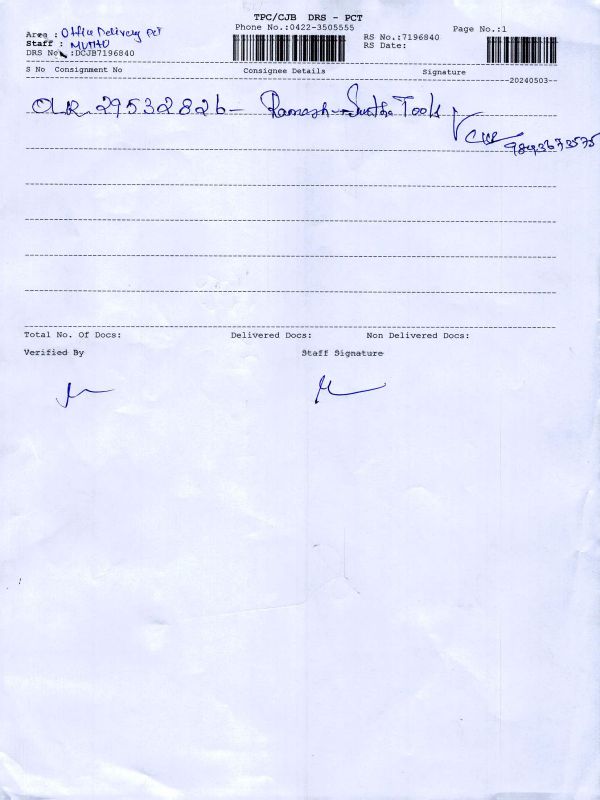 TPC/CJB DRS - PCT
Phone No.:0422-3505555
Page No.:1
Area : Office Delivery PCT
Staff : MUTHU
RS No.:7196840
RS Date:
DRS No. :DCJB7196840
S No Consignment No Consignee Details Signature
20240503
OLR 29532826 - Ramesh - Tools
9843673575
Total No. Of Docs: Delivered Docs: Non Delivered Docs:
Verified By Staff Signature